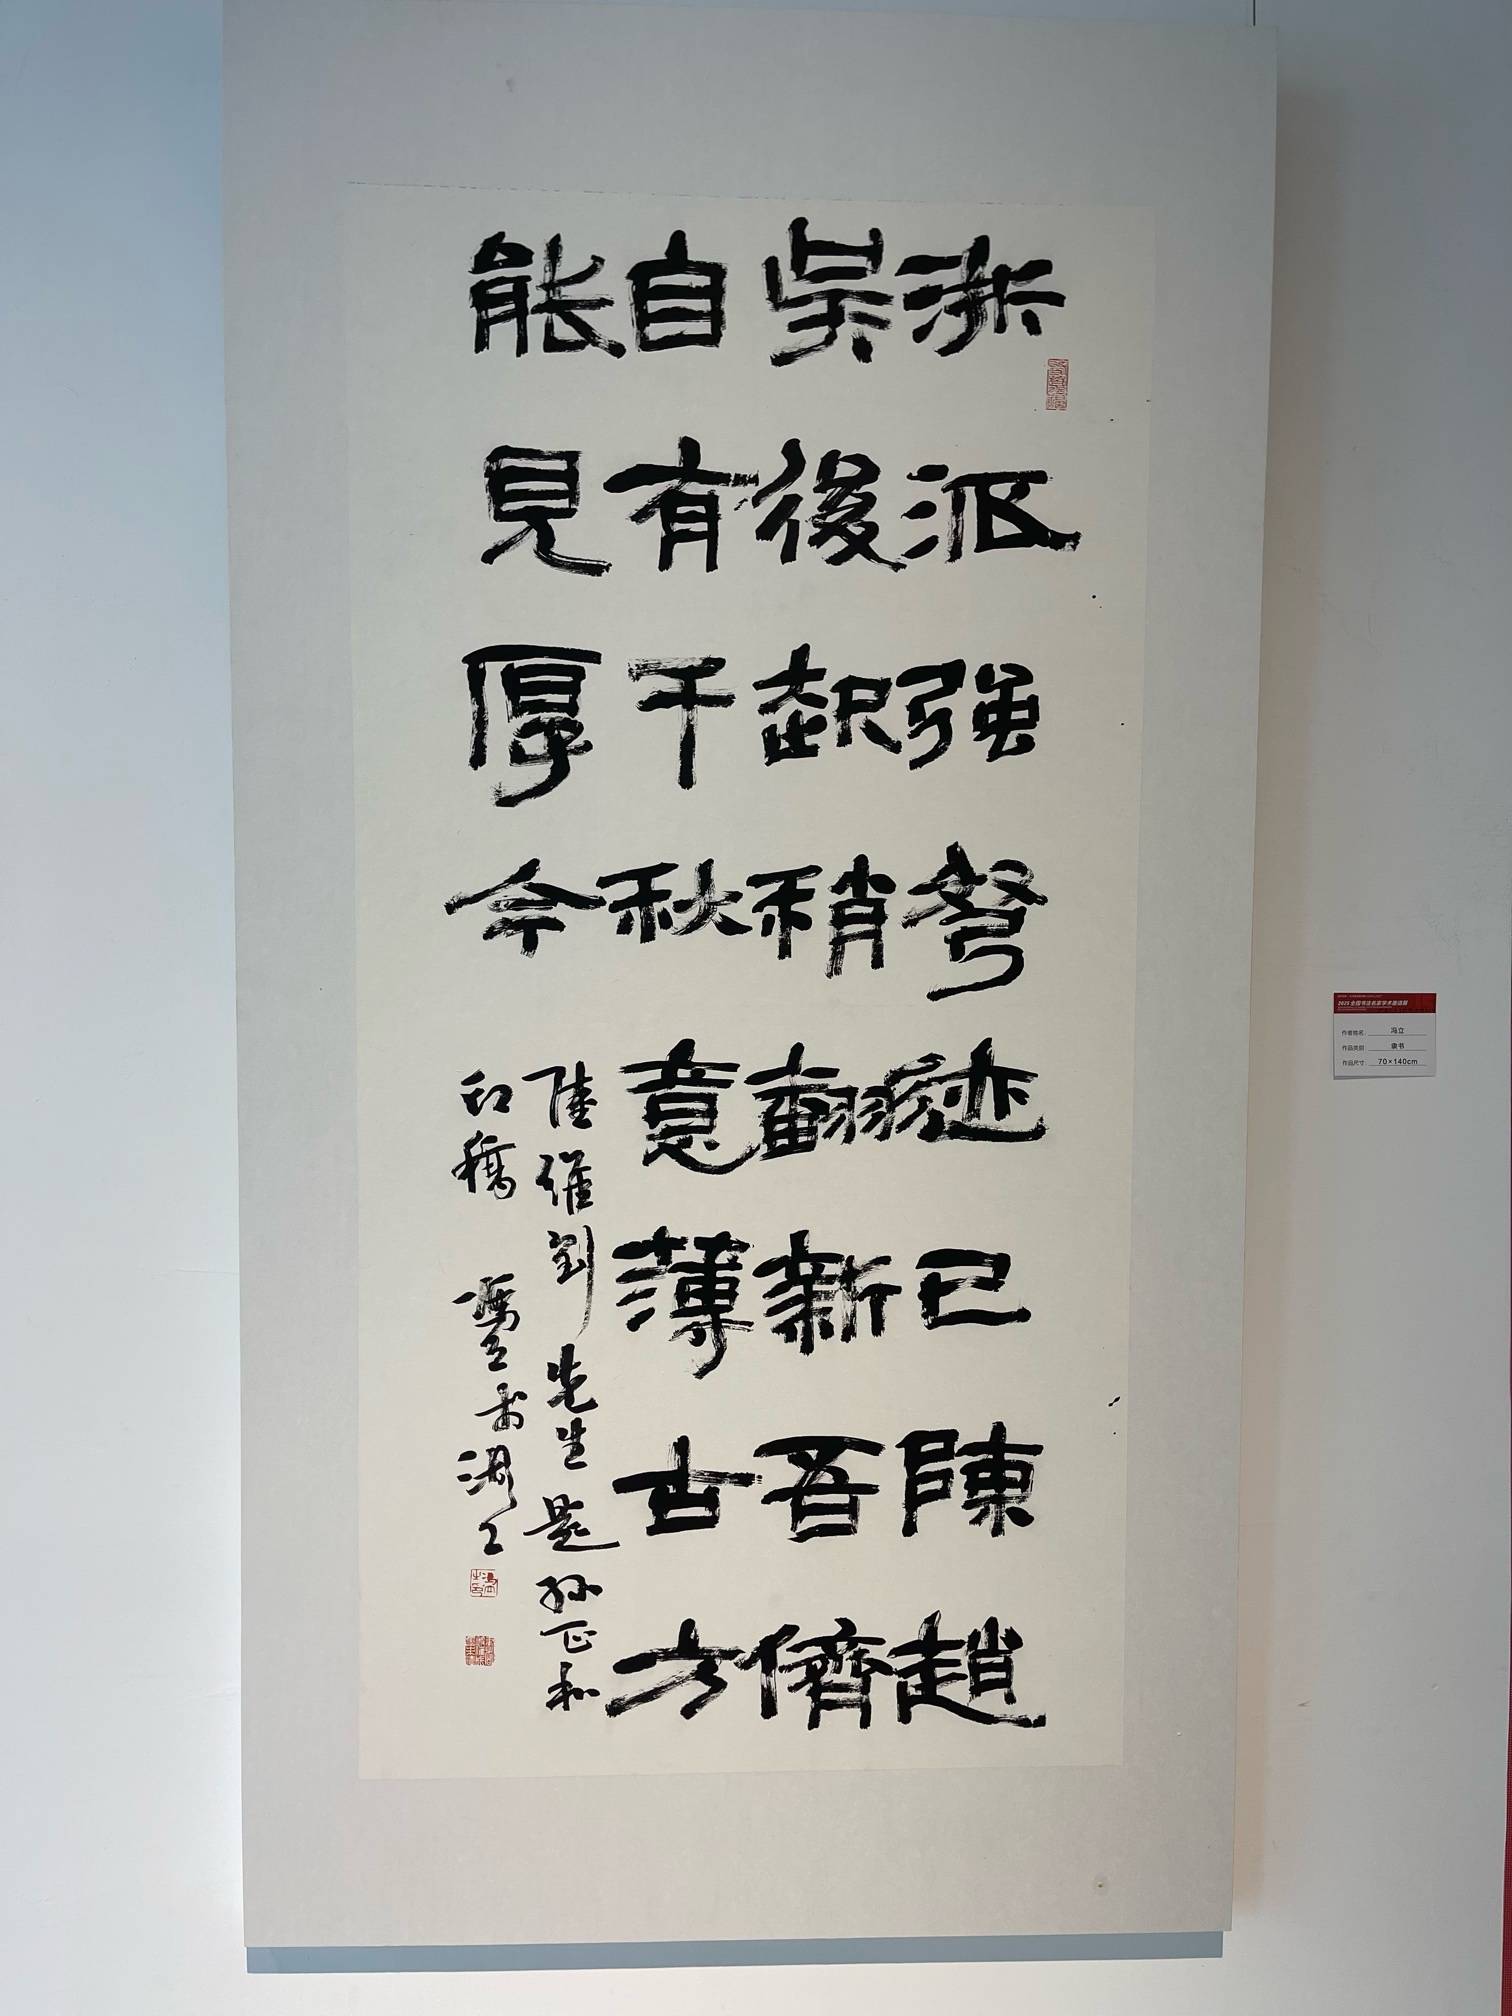 浙派强弩迹已陳趙
吴後起稍翻新吾儕
自有千秋意薄古方
能見厚今
陸維釗先生題孙正和
印稿 馮立書湖上
2025全国书法名家学术邀请展
作者姓名: 冯立
作品类别: 隶书
作品尺寸: 70×140cm